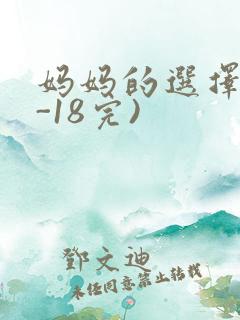 妈妈的選擇
-18完)
鄧文迪
未任同意禁止转载